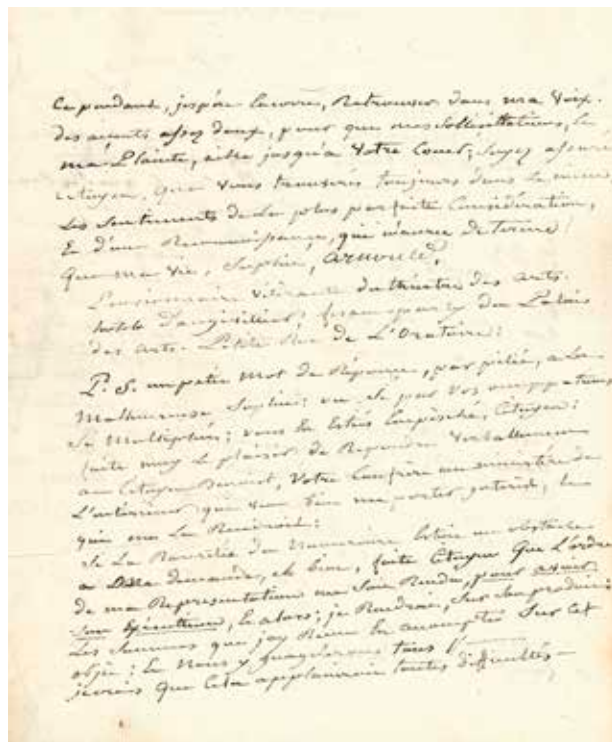 Cependant, j'espère Encorre, Retrouver dans ma Voix
des accents assez doux, pour que mes Sollicitations, Et
ma Plainte, aille jusqu'a Votre Coeur; Soyez assuré
Citoyen, Que Vous trouverés toujours dans La mienne
Les Sentiments de La plus parfaite Considération,
E d'une Reconnoissance, qui n'aurra de Terme
Que ma Vie, Sophie, Arnould,
Pensionnaire Vétérante du théatre des Arts.
hotels D'angivilliers, faisant party du Palais
des Arts. Petite Rue de L'Oratoire:
P. S. un petit Mot de Réponse, par pitié, a La
Malheureuse Sophie; ou Si par Vos occuppations
Se Multipliés; vous En Estiés Empêsché, Citoyen:
faite moy Le plaisir de Repondre Verballement
au Citoyen Votre Confrère au ministère de
L'intérieur qui veut bien me porter interest, Et
qui me Le Rendroit:
Si La Rareté du Numeraire Estoit un obstacle
a Ma demande, eh bien, faite Citoyen Que L'ordre
de ma Représentation me Soit Rendu, pour
Son Exécution, Et alors; je Rendrai, Sur Son produit
Les Sommes que j'ay Reçue En accompte Sur Cet
objet; Et Nous y gagnerons tous
je crois Que Cela applaniroit toutes difficultés